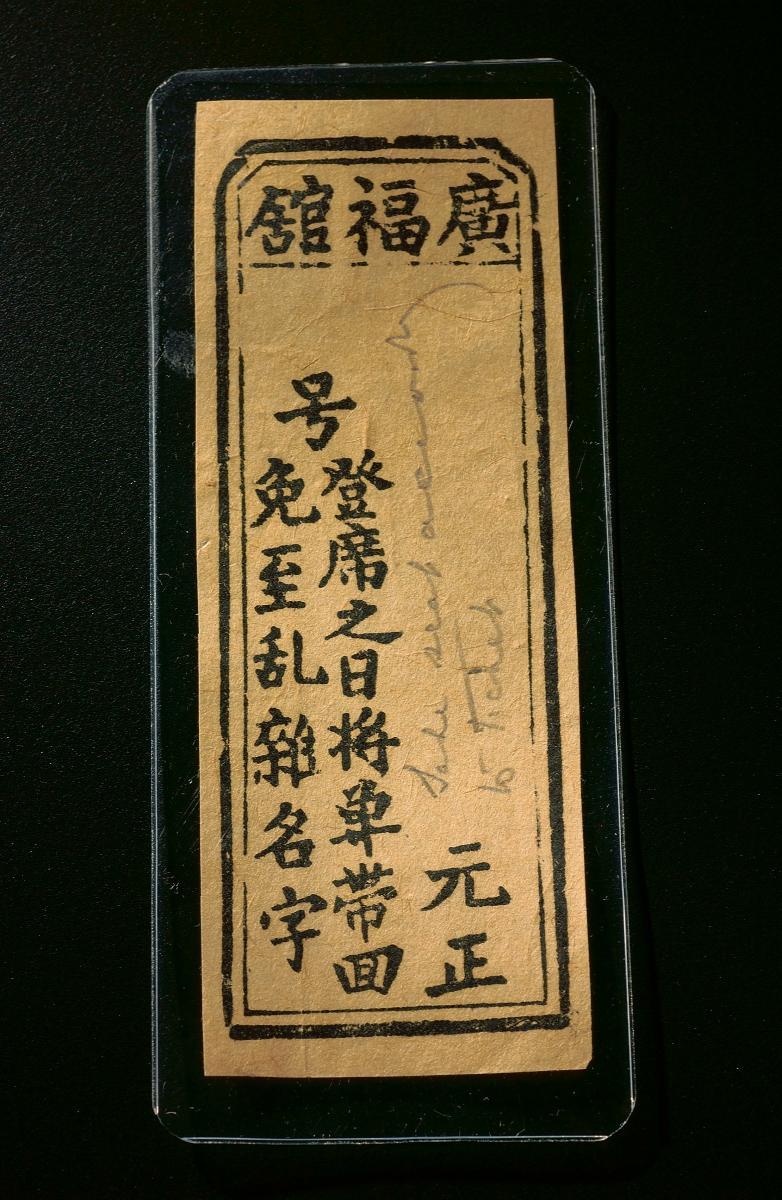 廣福舘
元正
登席之日将单带回
免至乱雜名字
号
Take seat according
to Ticket